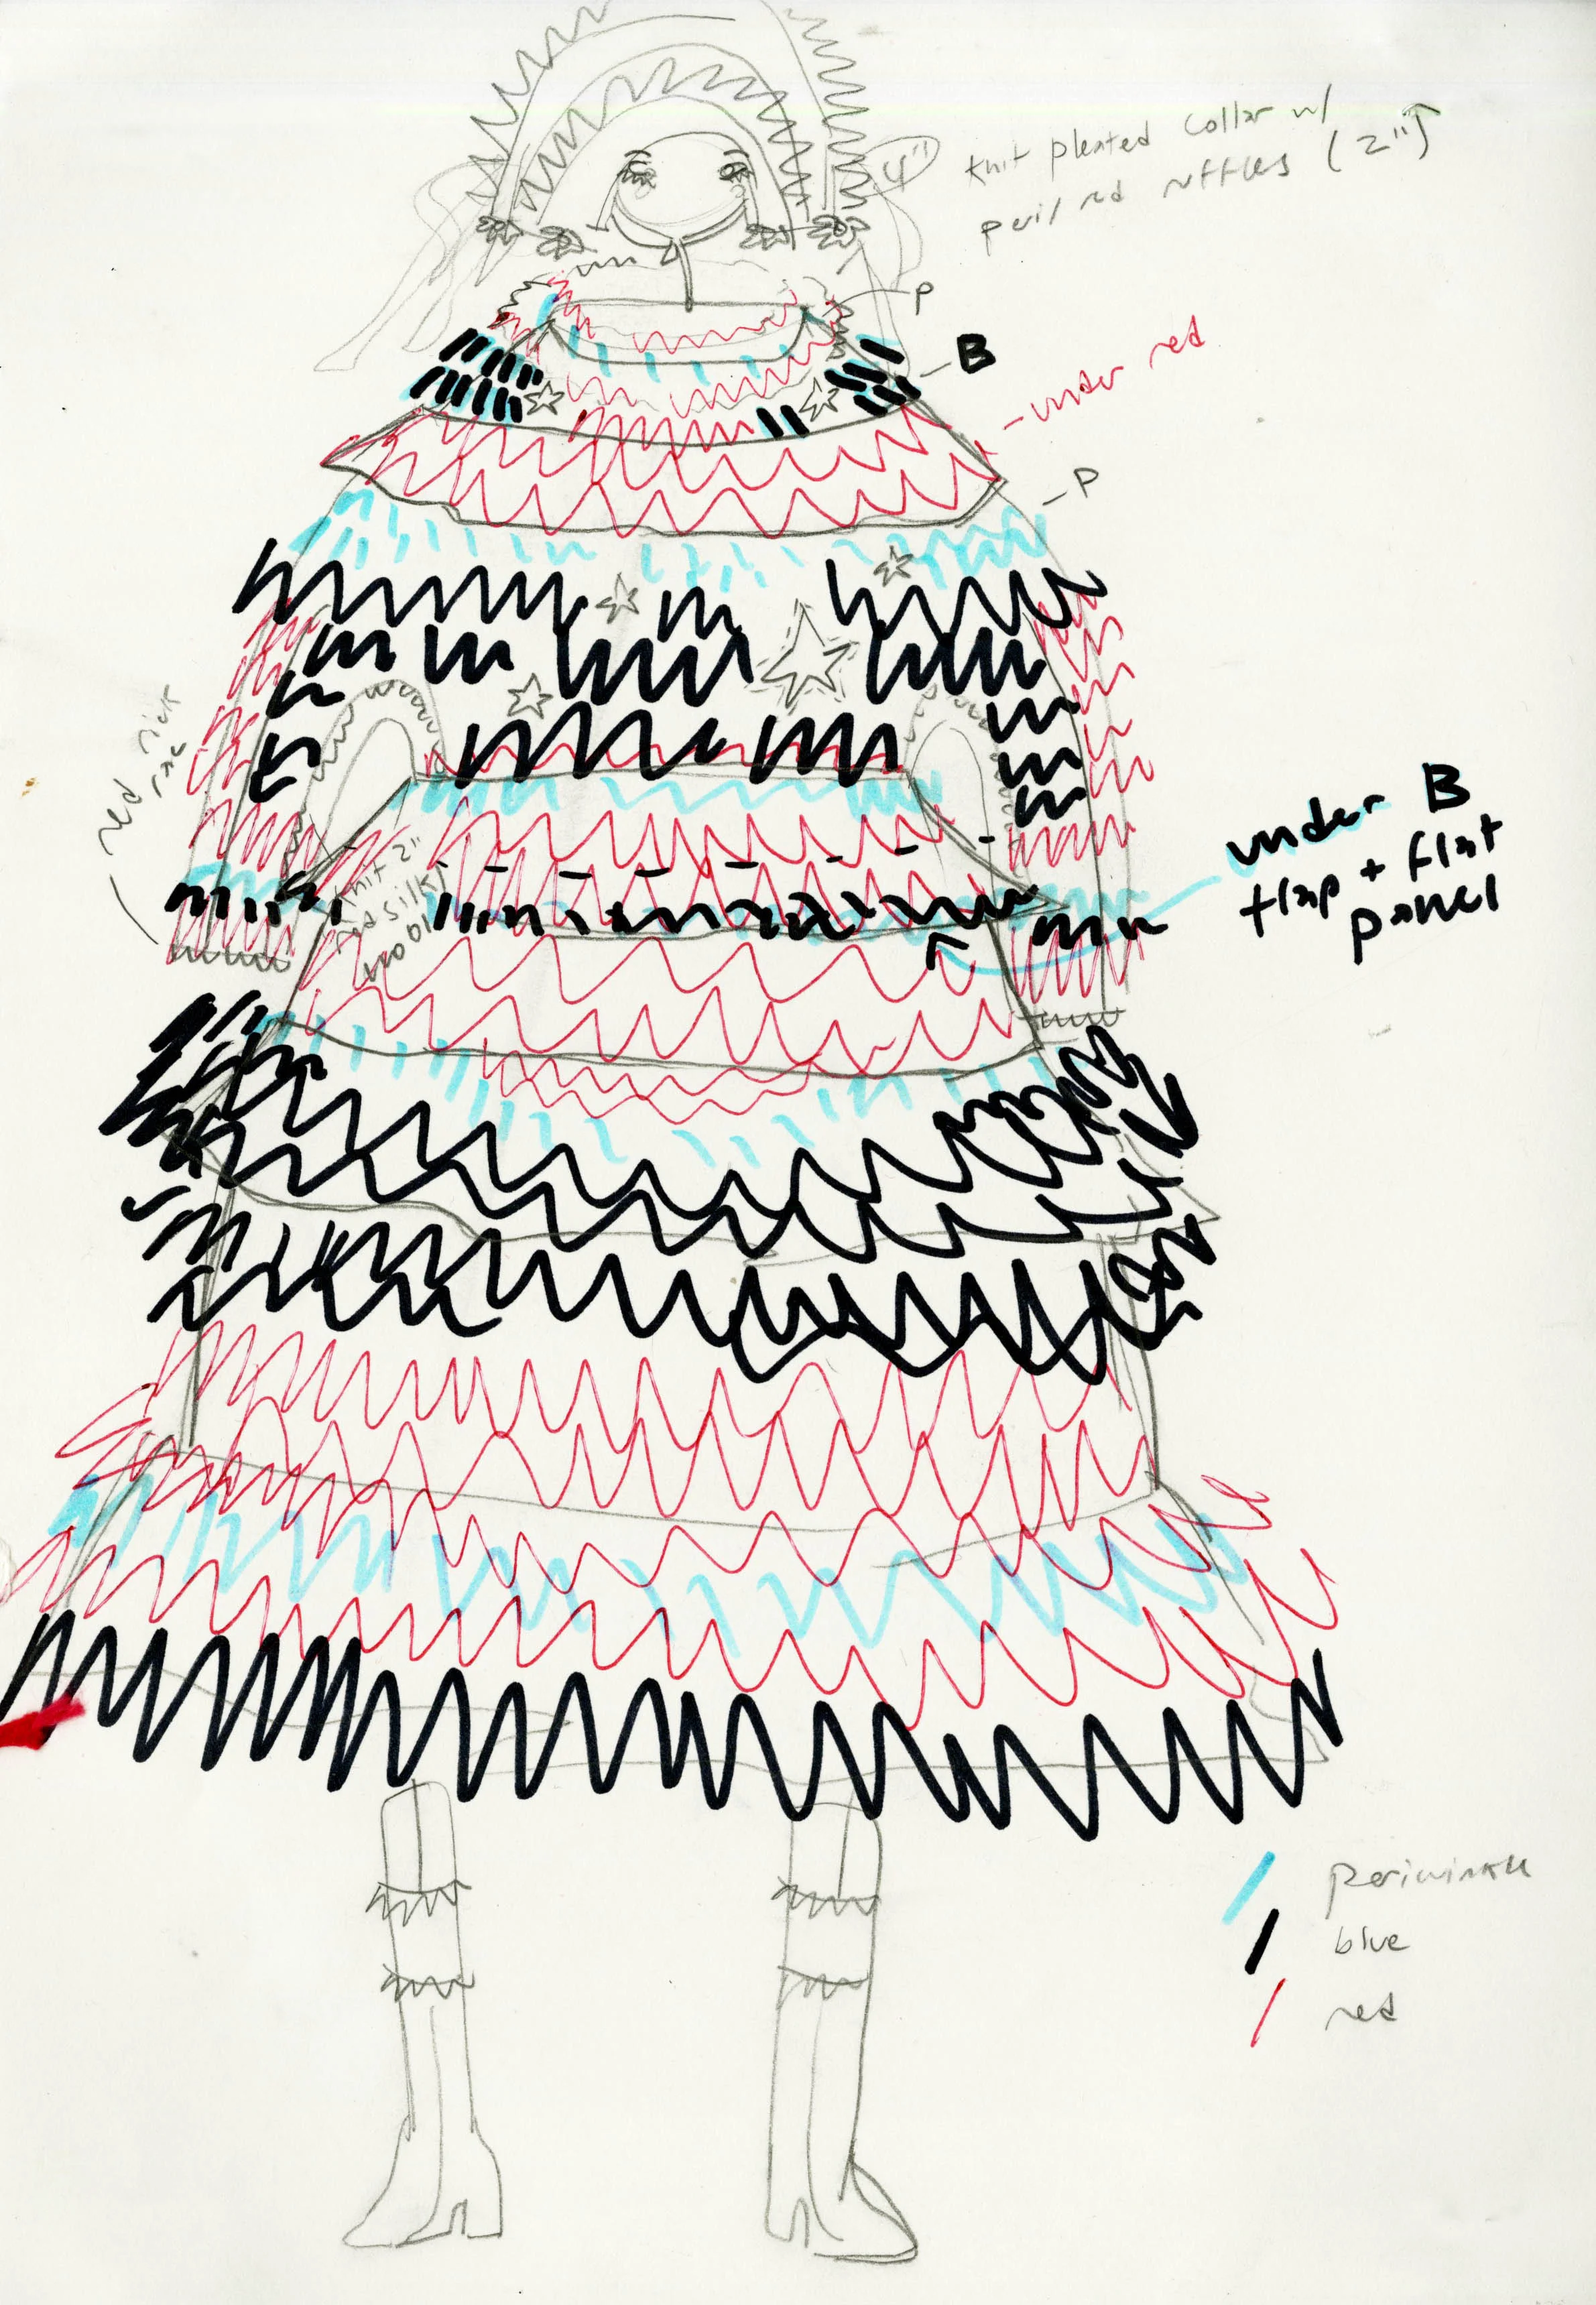 4"
knit pleated collar w/
peri/red ruffles (2")
P
B
- under red
- P
red rick
rac
knit 2"
red silky
wool
under B
flap + flat
panel
periwinkle
blue
red